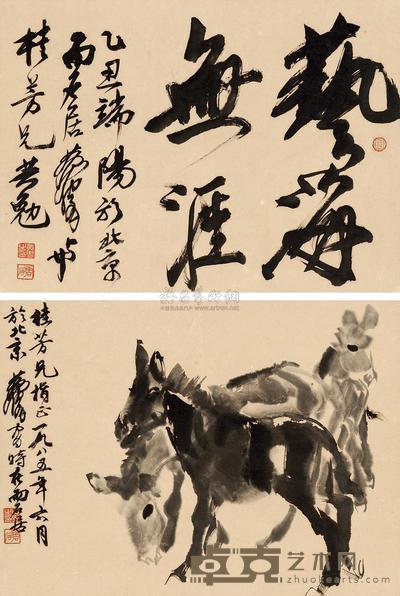 藝海
無涯
乙丑端陽於北京
雨石居黃冑與
桂芳兄共勉
桂芳兄指正一九八五年六月
於北京黃冑寫時在雨石居
卓克艺术网
zhuokearts.com